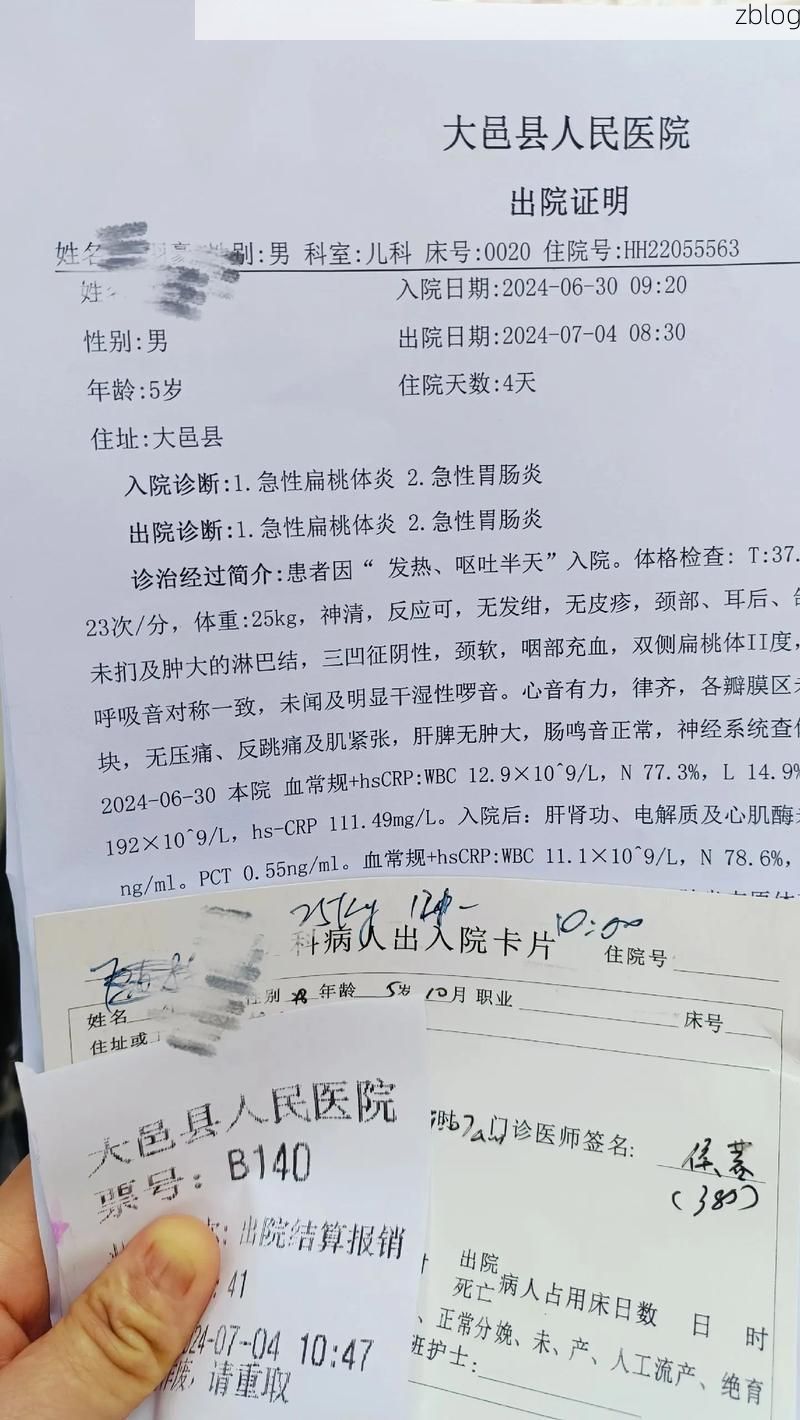 zblog
大邑县人民医院
出院证明
姓名 性别:男 科室:儿科 床号:0020 住院号:HH22055563
姓 入院日期:2024-06-30 09:20
性别:男 出院日期:2024-07-04 08:30
年龄:5岁 住院天数:4天
住址:大邑县
入院诊断:1.急性扁桃体炎 2.急性胃肠炎
出院诊断:1.急性扁桃体炎 2.急性胃肠炎
诊治经过简介:患者因“ 发热、呕吐半天”入院。体格检查: T:37.
23次/分, 体重:25kg, 神清, 反应可, 无发绀, 无皮疹, 颈部、耳后、
未扪及肿大的淋巴结, 三凹征阴性, 颈软, 咽部充血, 双侧扁桃体II度,
呼吸音对称一致, 未闻及明显干湿性啰音。心音有力, 律齐, 各瓣膜区
块, 无压痛、反跳痛及肌紧张, 肝脾无肿大, 肠鸣音正常, 神经系统查
2024-06-30 本院 血常规+hsCRP:WBC 12.9×10^9/L, N 77.3%, L 14.9%
192×10^9/L, hs-CRP 111.49mg/L。入院后: 肝肾功、电解质及心肌酶
ng/ml。PCT 0.55ng/ml。血常规+hsCRP:WBC 11.1×10^9/L, N 78.6%,
25kg 10:00
科病人出入院卡片 住院号
姓名 性别 男 年龄 5岁 10月 职业 床号
住址或
门诊医师签名:
(380)
大邑县人民医院
票号: B140
出院结算报销
: 41
24-07-04 10:47
请重取
出院
死亡 病人占用床日数 日 时
、正常分娩、未、产、人工流产、绝育
班护士: